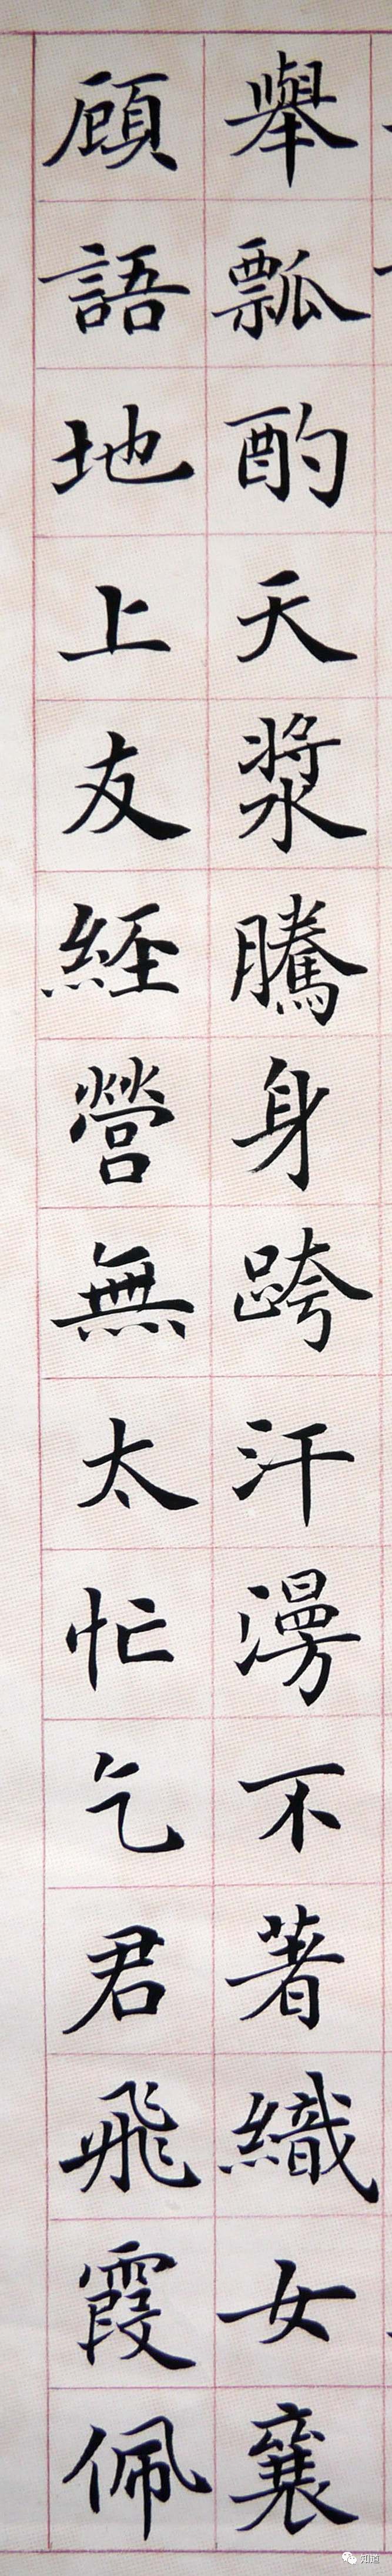 舉瓢酌天漿騰身跨汗漫不著織女襄
顧語地上友經營無太忙乞君飛霞佩
知酷